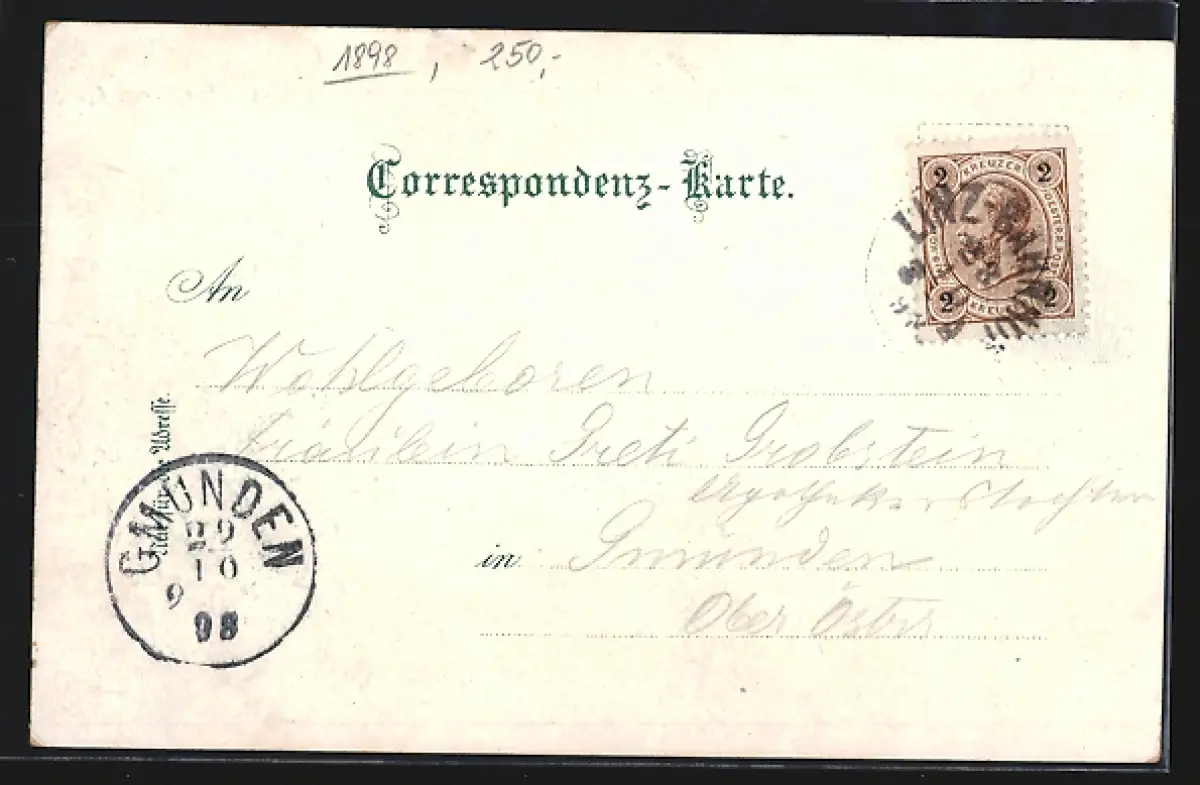 1898, 250,-
Correspondenz-Karte.
2 KREUZER 2
2 2
LINZ-BAHNH
An
Wohlgeboren
Fräulein Greti Grobstein
Apothekerstochter
in Gmunden
Ober Östr
Adresse.
GMUNDEN
29
10
9
98